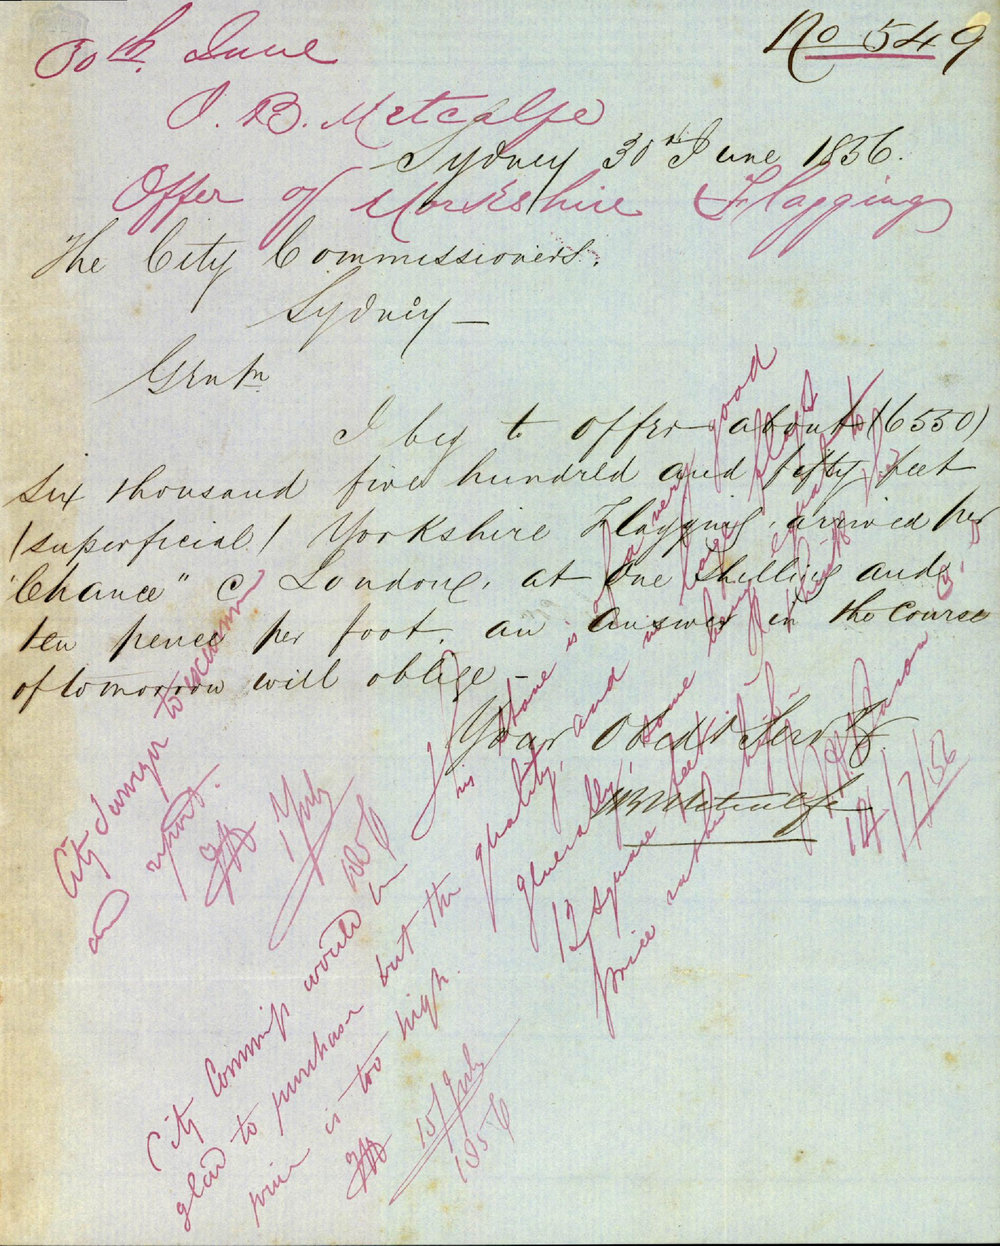 No 549
30th. June
J. B. Metcalfe
Sydney 30th June 1856.
Offer of Yorkshire Flagging
The City Commissioners.
Sydney —
Gentn
I beg to offer about (6550)
six thousand five hundred and fifty feet
/superficial/ Yorkshire Flagging, arrived per
"Chance" @ London, at One Shilling and
ten pence per foot. an answer in the course
of tomorrow will oblige —
Your Obedt Servt
JB Metcalfe
City Surveyor to examine
and report.
1 July
1856
This stone is of a very good
quality, and in large flags
generally, some being equal to
12 square feet
price rather high
14/7/56
City Commiss would be
glad to purchase but the
price is too high.
15/July
1856